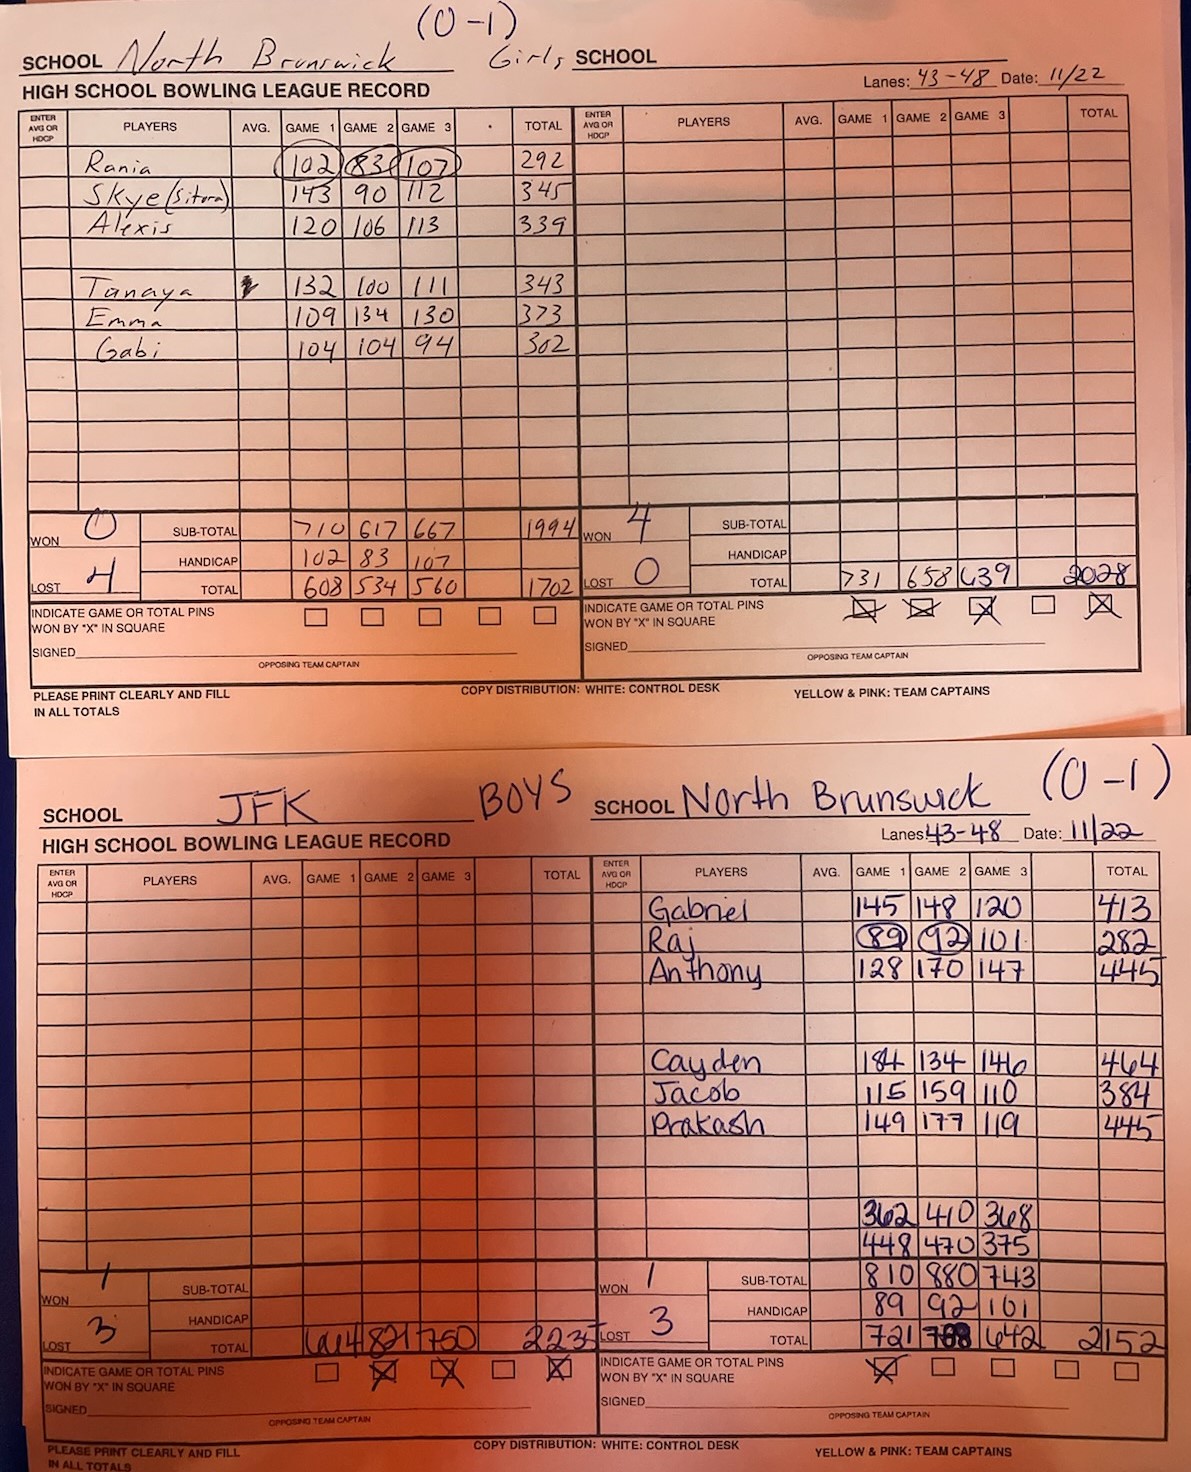 (0-1)
SCHOOL North Brunswick Girls SCHOOL
HIGH SCHOOL BOWLING LEAGUE RECORD Lanes: 43-48 Date: 11/22
ENTER AVG OR HDCP PLAYERS AVG. GAME 1 GAME 2 GAME 3 TOTAL ENTER AVG OR HDCP PLAYERS AVG. GAME 1 GAME 2 GAME 3 TOTAL
Rania 102 83 107 292
Skye (Sitora) 143 90 112 345
Alexis 120 106 113 339
Tanaya 132 100 111 343
Emma 109 134 130 373
Gabi 104 104 94 302
WON 0 SUB-TOTAL 710 617 667 1994 WON 4 SUB-TOTAL
HANDICAP 102 83 107 HANDICAP
LOST 4 TOTAL 608 534 560 1702 LOST 0 TOTAL 731 658 639 2028
INDICATE GAME OR TOTAL PINS INDICATE GAME OR TOTAL PINS
WON BY "X" IN SQUARE WON BY "X" IN SQUARE
SIGNED SIGNED
OPPOSING TEAM CAPTAIN OPPOSING TEAM CAPTAIN
PLEASE PRINT CLEARLY AND FILL COPY DISTRIBUTION: WHITE: CONTROL DESK YELLOW & PINK: TEAM CAPTAINS
IN ALL TOTALS
SCHOOL JFK BOYS SCHOOL North Brunswick (0-1)
HIGH SCHOOL BOWLING LEAGUE RECORD Lanes: 43-48 Date: 11/22
ENTER AVG OR HDCP PLAYERS AVG. GAME 1 GAME 2 GAME 3 TOTAL ENTER AVG OR HDCP PLAYERS AVG. GAME 1 GAME 2 GAME 3 TOTAL
Gabriel 145 148 120 413
Raj 89 92 101 282
Anthony 128 170 147 445
Cayden 184 134 146 464
Jacob 115 159 110 384
Prakash 149 177 119 445
362 410 368
448 470 375
WON 1 SUB-TOTAL WON 1 SUB-TOTAL 810 880 743
HANDICAP HANDICAP 89 92 101
LOST 3 TOTAL 821 750 2235 LOST 3 TOTAL 721 788 642 2152
INDICATE GAME OR TOTAL PINS INDICATE GAME OR TOTAL PINS
WON BY "X" IN SQUARE WON BY "X" IN SQUARE
SIGNED SIGNED
OPPOSING TEAM CAPTAIN OPPOSING TEAM CAPTAIN
PLEASE PRINT CLEARLY AND FILL COPY DISTRIBUTION: WHITE: CONTROL DESK YELLOW & PINK: TEAM CAPTAINS
IN ALL TOTALS